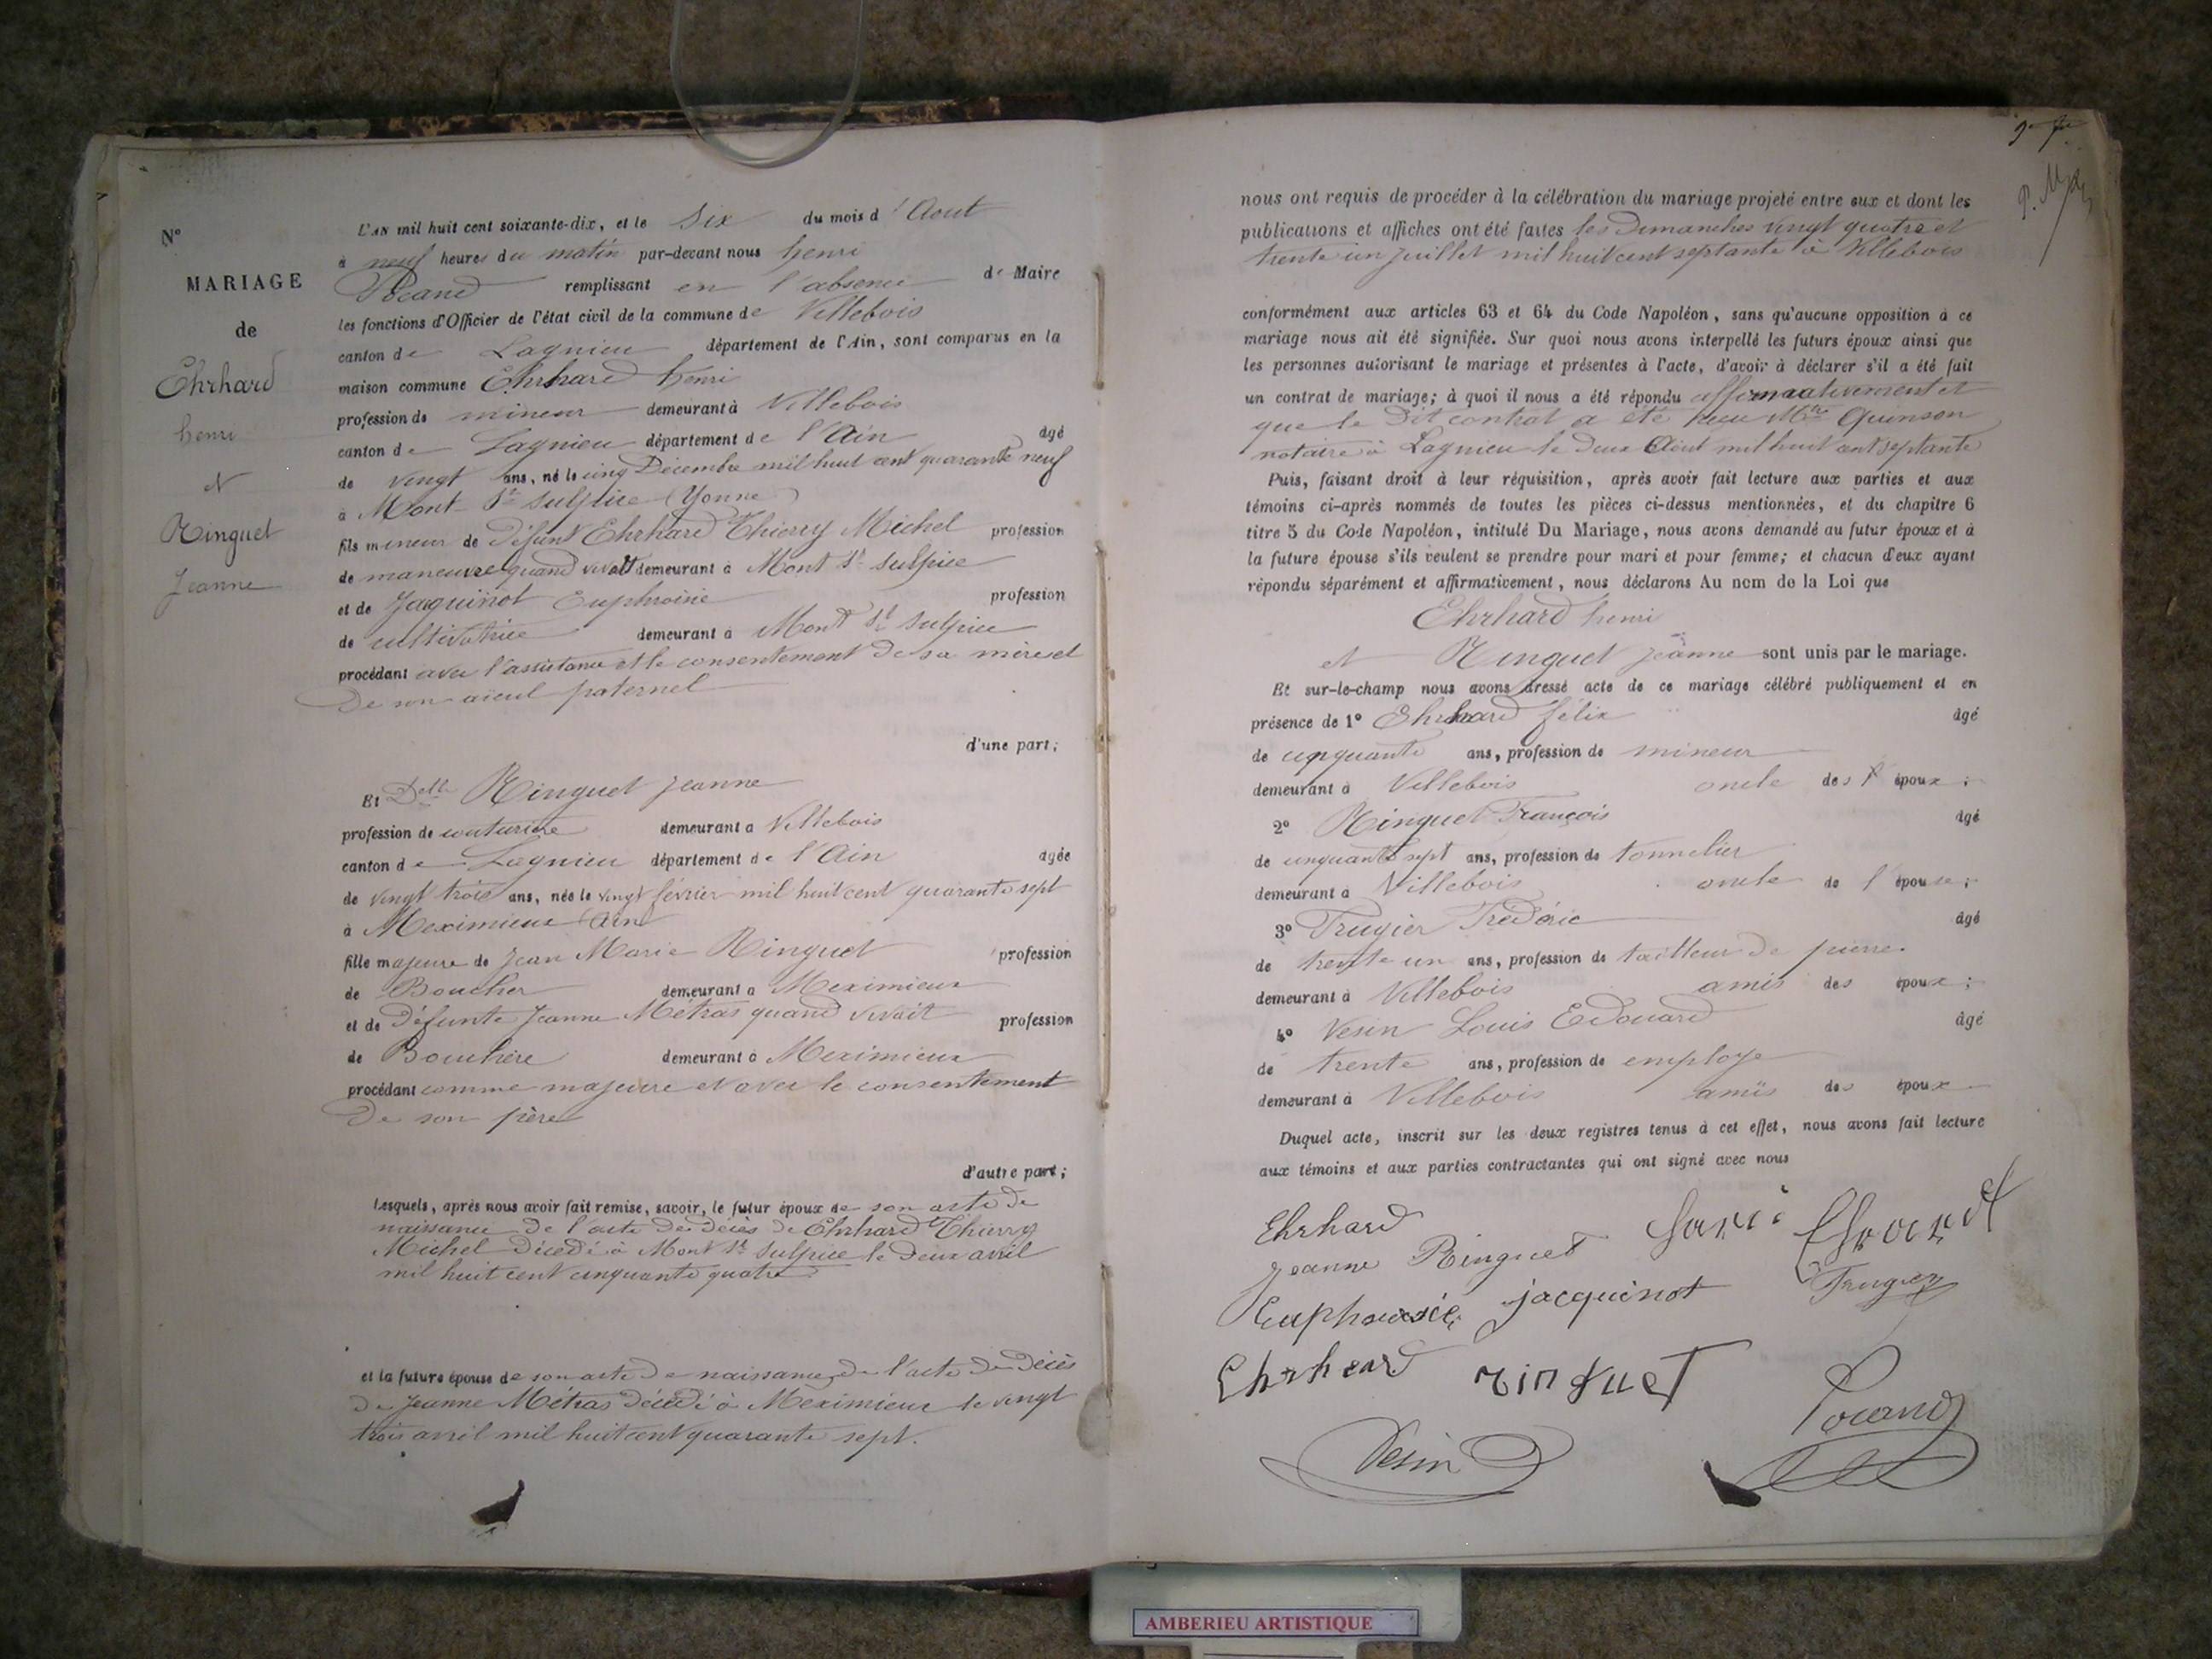 N°
MARIAGE
de
Ehrhard
henri
et
Ringuet
Jeanne
L'AN mil huit cent soixante-dix, et le Six du mois d'Aout
à neuf heures du matin par-devant nous henri
Pocand remplissant en l'absence de Maire
les fonctions d'Officier de l'état civil de la commune de Villebois
canton de Lagnieu département de l'Ain, sont comparus en la
maison commune Ehrhard henri
profession de mineur demeurant à Villebois
canton de Lagnieu département de l'Ain âgé
de vingt ans, né le cinq Décembre mil huit cent quarante neuf
à Mont St Sulpice (Yonne)
fils mineur de Défunt Ehrhard Thierry Michel profession
de maneuvre quand vivait demeurant à Mont St Sulpice
et de Jaquinot Euphroisie profession
de cultivatrice demeurant à Mont St Sulpice
procédant avec l'assistance et le consentement de sa mère et
De son aïeul paternel
d'une part;
Et Delle Ringuet Jeanne
profession de couturière demeurant à Villebois
canton de Lagnieu département de l'Ain âgée
de vingt trois ans, née le vingt février mil huit cent quarante sept
à Meximieux (Ain)
fille majeure de Jean Marie Ringuet profession
de Boucher demeurant à Meximieux
et de Défunte Jeanne Métras quand vivait profession
de Bouchère demeurant à Meximieux
procédant comme majeure et avec le consentement
De son père
d'autre part;
Lesquels, après nous avoir fait remise, savoir, le futur époux de son acte de
naissance de l'acte de décès de Ehrhard Thierry
Michel Décédé à Mont St Sulpice le Deux avril
mil huit cent cinquante quatre
et la future épouse de son acte de naissance, de l'acte de décès
de Jeanne Métras décédé à Meximieux le vingt
trois avril mil huit cent quarante sept.
nous ont requis de procéder à la célébration du mariage projeté entre eux et dont les
publications et affiches ont été faites les Dimanches vingt quatre et
trente un juillet mil huit cent septante à Villebois
conformément aux articles 63 et 64 du Code Napoléon, sans qu'aucune opposition à ce
mariage nous ait été signifiée. Sur quoi nous avons interpellé les futurs époux ainsi que
les personnes autorisant le mariage et présentes à l'acte, d'avoir à déclarer s'il a été fait
un contrat de mariage; à quoi il nous a été répondu affirmativement et
que le Dit contrat a été reçu Mtre Quinson
notaire à Lagnieu le Deux Aout mil huit cent septante
Puis, faisant droit à leur réquisition, après avoir fait lecture aux parties et aux
témoins ci-après nommés de toutes les pièces ci-dessus mentionnées, et du chapitre 6
titre 5 du Code Napoléon, intitulé Du Mariage, nous avons demandé au futur époux et à
la future épouse s'ils veulent se prendre pour mari et pour femme; et chacun d'eux ayant
répondu séparément et affirmativement, nous déclarons Au nom de la Loi que
Ehrhard henri
et Ringuet Jeanne sont unis par le mariage.
Et sur-le-champ nous avons dressé acte de ce mariage célébré publiquement et en
présence de 1° Ehrhard félix âgé
de cinquante ans, profession de mineur
demeurant à Villebois oncle de l'époux;
2° Ringuet François âgé
de cinquante sept ans, profession de tonnelier
demeurant à Villebois oncle de l'épouse;
3° Trugier Frédéric âgé
de trente un ans, profession de tailleur de pierre.
demeurant à Villebois amis des époux;
4° Vesin Louis Edouard âgé
de trente ans, profession de employé
demeurant à Villebois amis des époux
Duquel acte, inscrit sur les deux registres tenus à cet effet, nous avons fait lecture
aux témoins et aux parties contractantes qui ont signé avec nous
Ehrhard
Jeanne Ringuet
jacquinot
Trugier
Ehrhard ringuet
Pocand
Vesin
AMBERIEU ARTISTIQUE